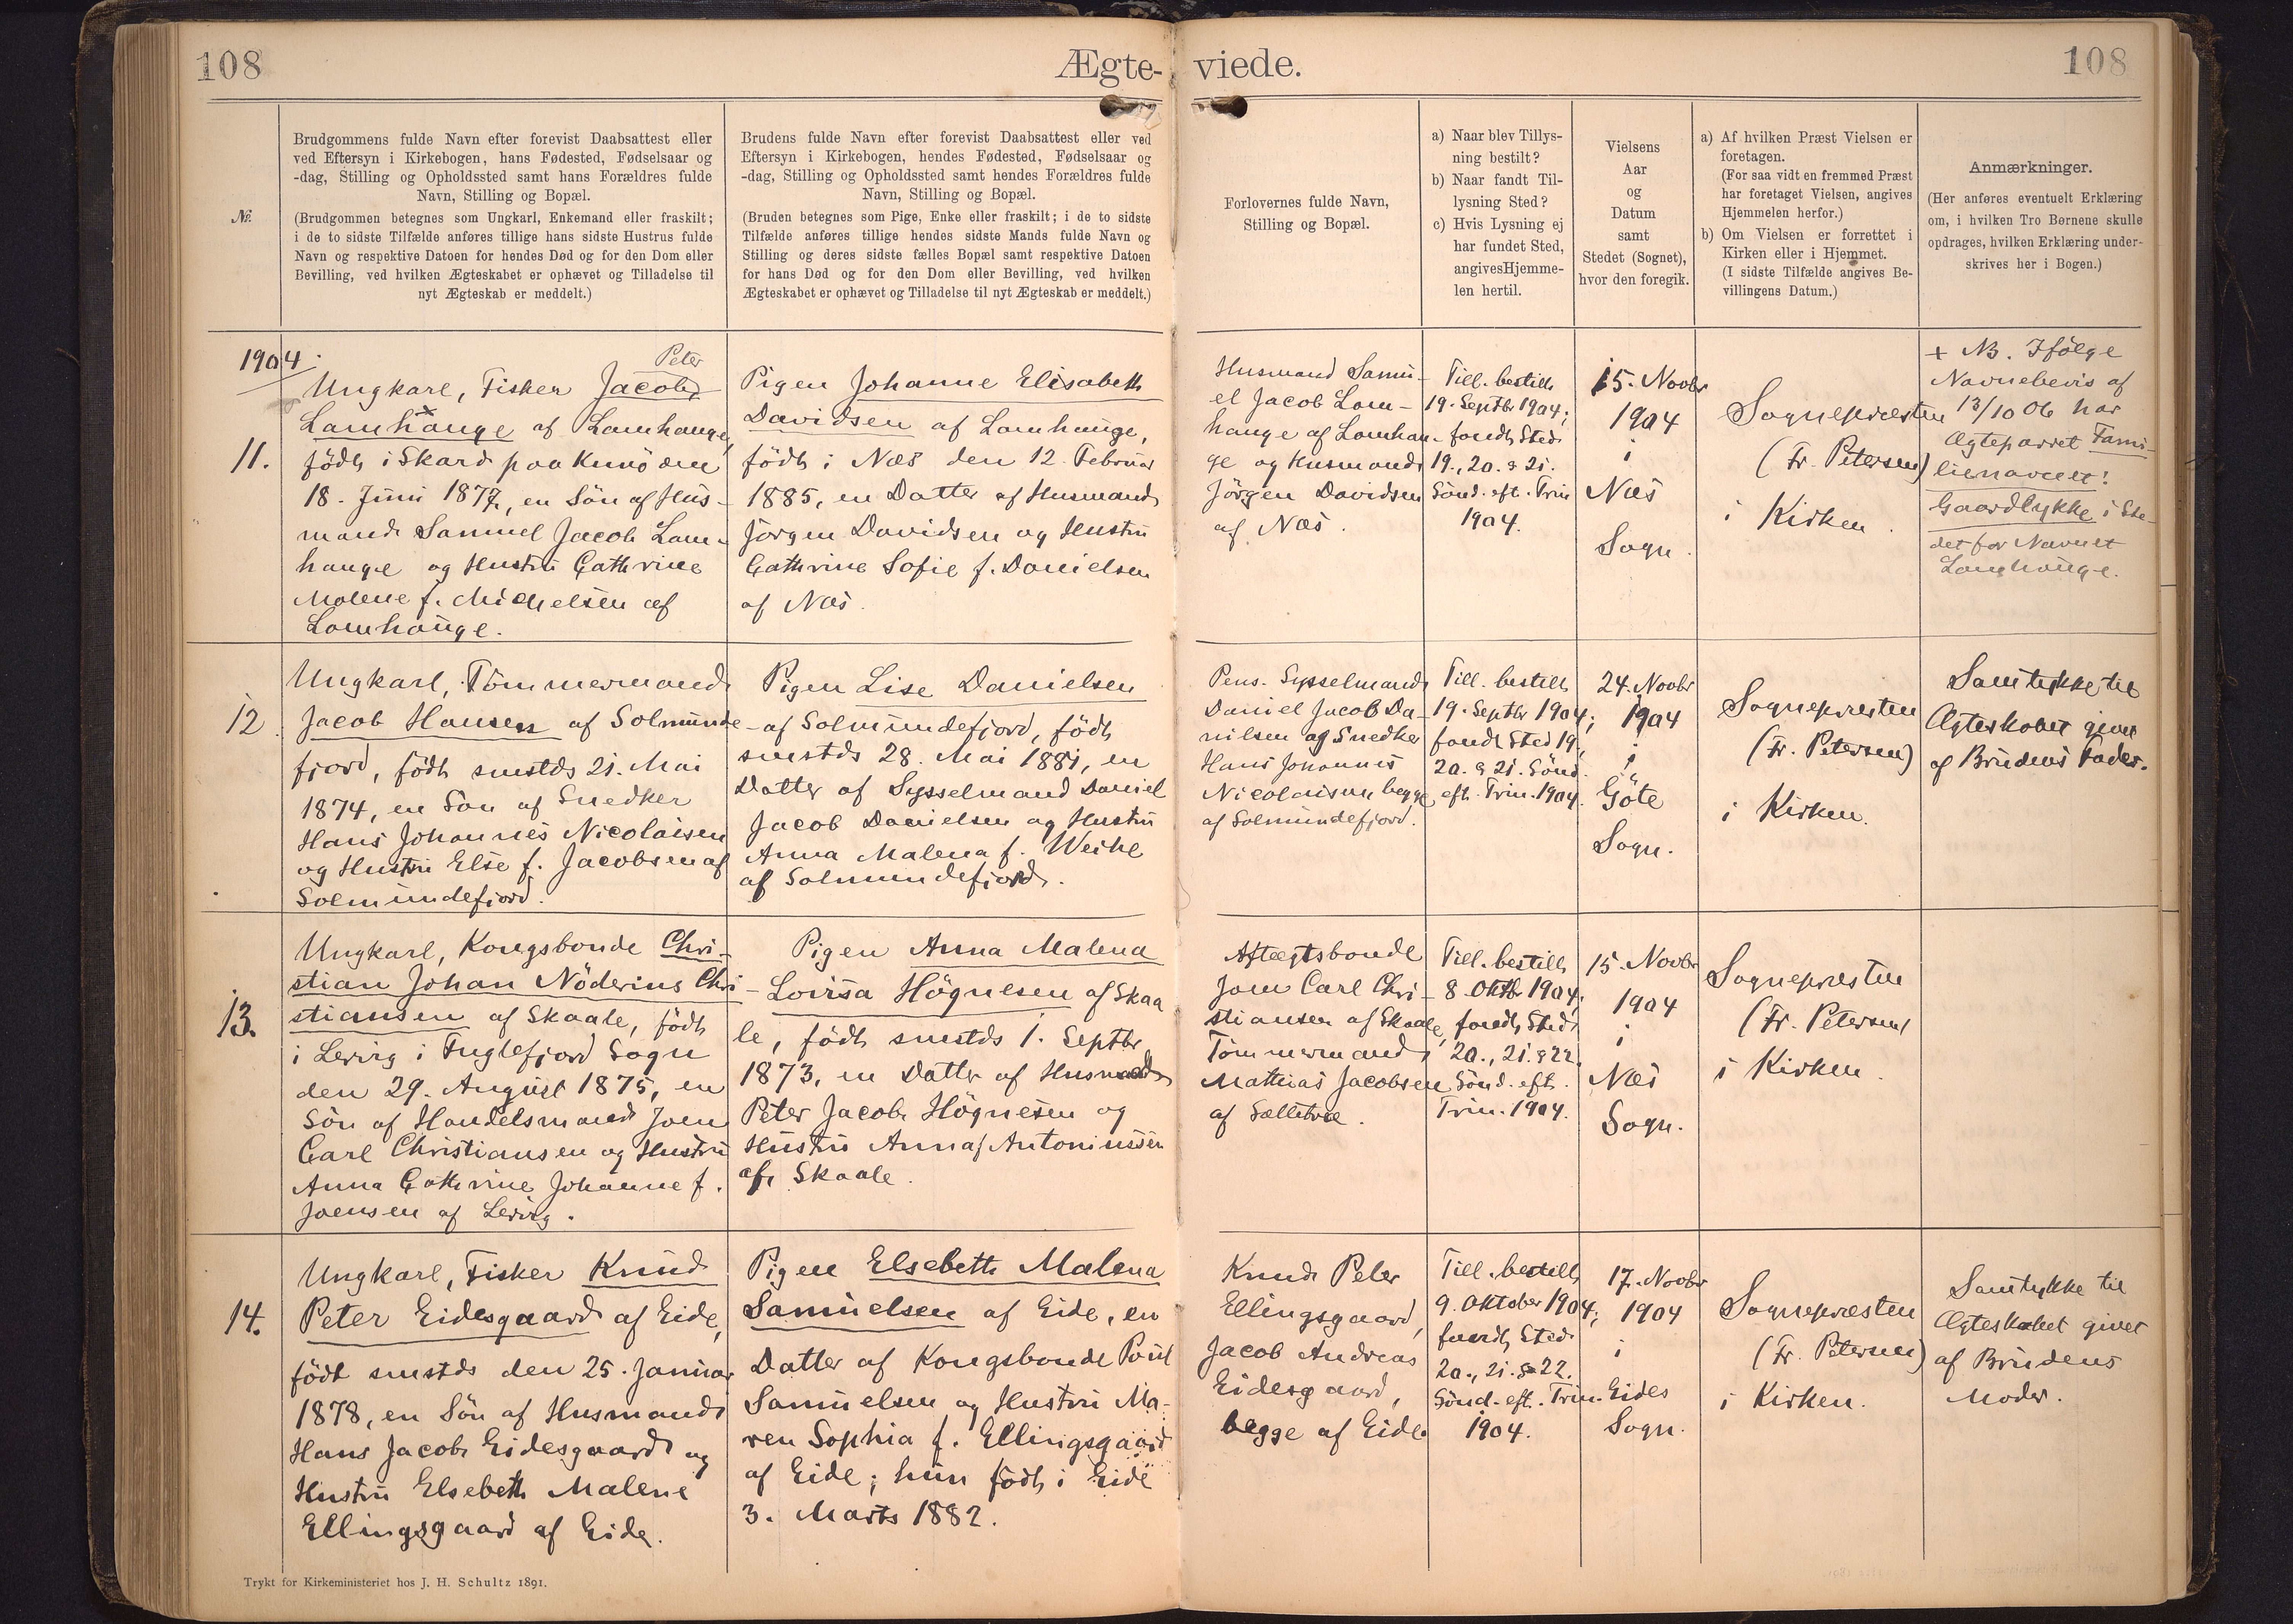 108
Ægte-
viede.
108
№.
Brudgommens fulde Navn efter forevist Daabsattest eller
ved Eftersyn i Kirkebogen, hans Fødested, Fødselsaar og
-dag, Stilling og Opholdssted samt hans Forældres fulde
Navn, Stilling og Bopæl.
(Brudgommen betegnes som Ungkarl, Enkemand eller fraskilt;
i de to sidste Tilfælde anføres tillige hans sidste Hustrus fulde
Navn og respektive Datoen for hendes Død og for den Dom eller
Bevilling, ved hvilken Ægteskabet er ophævet og Tilladelse til
nyt Ægteskab er meddelt.)
Brudens fulde Navn efter forevist Daabsattest eller ved
Eftersyn i Kirkebogen, hendes Fødested, Fødselsaar og
-dag, Stilling og Opholdssted samt hendes Forældres fulde
Navn, Stilling og Bopæl.
(Bruden betegnes som Pige, Enke eller fraskilt; i de to sidste
Tilfælde anføres tillige hendes sidste Mands fulde Navn og
Stilling og deres sidste fælles Bopæl samt respektive Datoen
for hans Død og for den Dom eller Bevilling, ved hvilken
Ægteskabet er ophævet og Tilladelse til nyt Ægteskab er meddelt.)
Forlovernes fulde Navn,
Stilling og Bopæl.
a) Naar blev Tillys-
ning bestilt?
b) Naar fandt Til-
lysning Sted?
c) Hvis Lysning ej
har fundet Sted,
angivesHjemme-
len hertil.
Vielsens
Aar
og
Datum
samt
Stedet (Sognet),
hvor den foregik.
a) Af hvilken Præst Vielsen er
foretagen.
(For saa vidt en fremmed Præst
har foretaget Vielsen, angives
Hjemmelen herfor.)
b) Om Vielsen er forrettet i
Kirken eller i Hjemmet.
(I sidste Tilfælde angives Be-
villingens Datum.)
Anmærkninger.
(Her anføres eventuelt Erklæring
om, i hvilken Tro Børnene skulle
opdrages, hvilken Erklæring under-
skrives her i Bogen.)
1904.
11.
Peter
Ungkarl, Fisker Jacob
Lamhauge af Lamhauge,
födt i Skard paa Kunö den
18. Juni 1877, en Sön af Hus-
mand Samuel Jacob Lam-
hauge og Hustru Cathrine
Malene f. Michelsen af
Lamhauge.
Pigen Johanne Elisabeth
Davidsen af Lamhauge,
födt i Næs den 12. Februar
1885, en Datter af Husmand
Jörgen Davidsen og Hustru
Cathrine Sofie f. Danielsen
af Næs.
Husmand Samu-
el Jacob Lam-
hauge af Lamhau-
ge og Husmand
Jörgen Davidsen
af Næs.
Till. bestilt
19. Septbr 1904;
fandt Sted
19., 20. & 21.
Sönd. eft. Trin
1904.
15. Novbr
1904
i
Næs
Sogn.
Sognepræsten
(Fr. Petersen)
i Kirken.
+ NB. Ifölge
Navnebevis af
13/10 06 har
Ægteparret Fami-
lienavnet:
Gaardlykke i Ste-
det for Navnet
Lamhauge.
12.
Ungkarl, Tömmermand
Jacob Hansen af Solmunde-
fjord, födt smstds 21. Mai
1874, en Sön af Snedker
Hans Johannes Nicolaisen
og Hustru Else f. Jacobsen af
Solmundefjord.
Pigen Lise Danielsen
af Solmundefjord, födt
smstds 28. Mai 1881, en
Datter af Sysselmand Daniel
Jacob Danielsen og Hustru
Anna Malena f. Weihe
af Solmundefjord.
Pens. Sysselmand
Daniel Jacob Da-
nilsen og Snedker
Hans Johannes
Nicolaisen begge
af Solmundefjord.
Till. bestilt
19. Septbr 1904;
fandt Sted 19.,
20. & 21. Sönd.
eft. Trin. 1904.
24. Novbr
1904
i
Göte
Sogn.
Sognepræsten
(Fr. Petersen)
i Kirken.
Samtykke til
Ægteskabet givet
af Brudens Fader.
13.
Ungkarl, Kongsbonde Chri-
stian Johan Nöderius Chri-
stiansen af Skaale, födt
i Lervig i Fuglefjord Sogn
den 29. August 1875, en
Sön af Handelsmand Joen
Carl Christiansen og Hustru
Anna Cathrine Johanne f.
Joensen af Lervig.
Pigen Anna Malena
Lovisa Högnesen af Skaa
le, födt smstds 1. Septbr
1873, en Datter af Husmand
Peter Jacob Högnesen og
Hustru Anna f Antoniussen
af Skaale.
Aftægtsbonde
Joen Carl Chri-
stiansen af Skaale,
Tömmermand
Mathias Jacobsen
af Saltetræ.
Till. bestilt
8. Oktbr 1904;
fandt Sted
20., 21. & 22.
Sönd. eft.
Trin. 1904.
15. Novbr
1904
i
Næs
Sogn.
Sognepræsten
(Fr. Petersen)
i Kirken.
14.
Ungkarl, Fisker Knud
Peter Eidesgaard af Eide,
födt smstds den 25. Januar
1878, en Sön af Husmand
Hans Jacob Eidesgaard og
Hustru Elsebeth Malene
Ellingsgaard af Eide.
Pigen Elsebeth Malena
Samuelsen af Eide, en
Datter af Kongsbonde Poul
Samuelsen og Hustru Ma-
ren Sophia f. Ellingsgaard
af Eide; hun födt i Eide
3. Marts 1882.
Knud Peter
Ellingsgaard,
Jacob Andreas
Eidesgaard,
begge af Eide
Till. bestilt
9. Oktober 1904;
fandt Sted
20., 21. & 22.
Sönd. eft. Trin.
1904.
17. Novbr
1904
i
Eides
Sogn.
Sognepræsten
(Fr. Petersen)
i Kirken.
Samtykke til
Ægteskabet givet
af Brudens
Moder.
Trykt for Kirkeministeriet hos J. H. Schultz 1891.